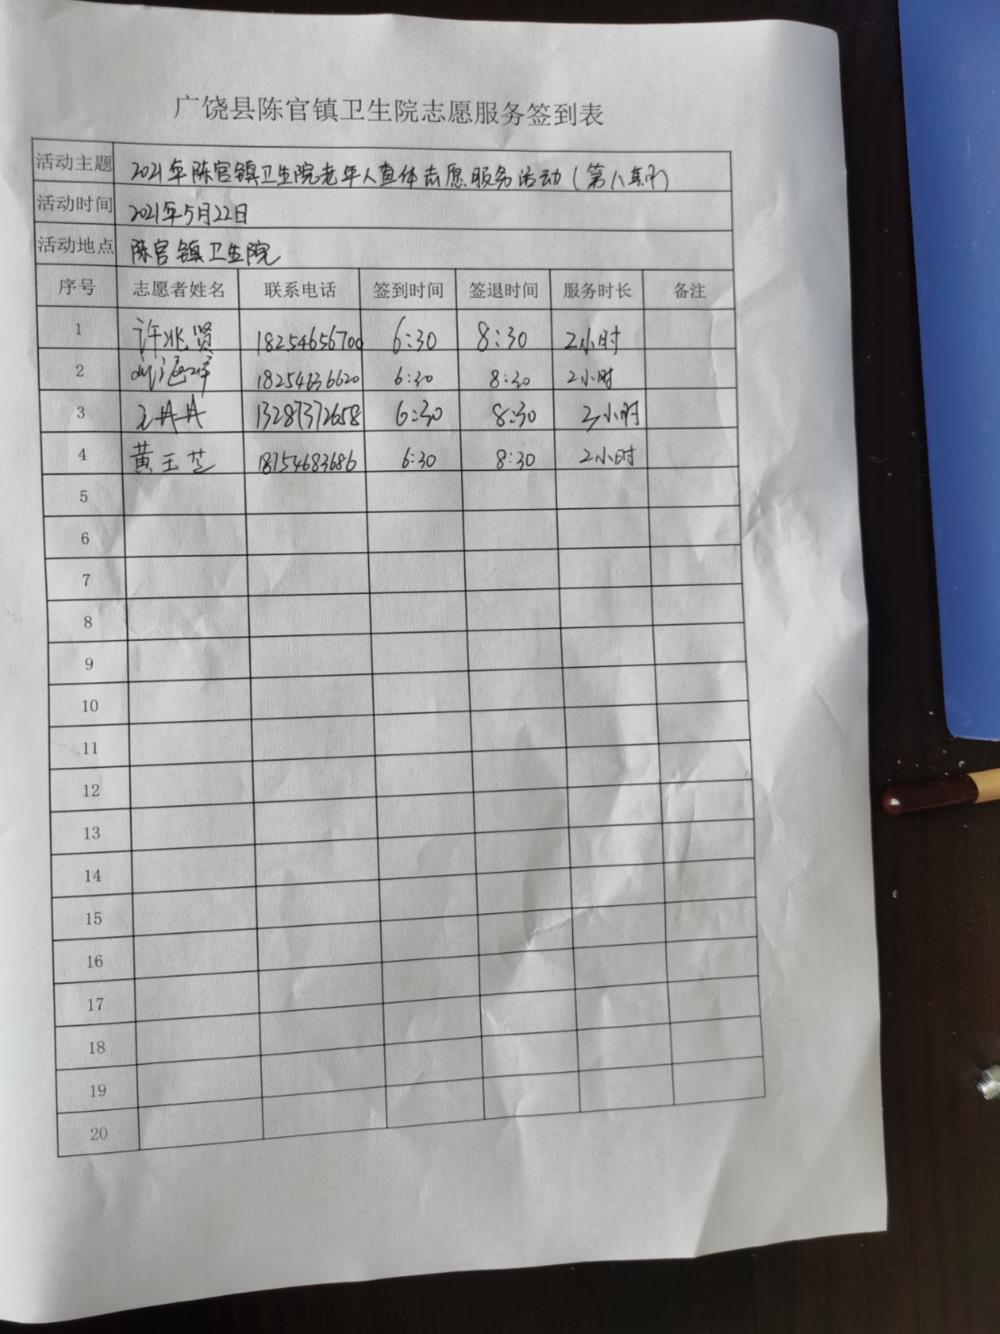 广饶县陈官镇卫生院志愿服务签到表
活动主题 2021年陈官镇卫生院老年人查体志愿服务活动(第八期)
活动时间 2021年5月22日
活动地点 陈官镇卫生院
序号 志愿者姓名 联系电话 签到时间 签退时间 服务时长 备注
1 许兆贤 18254656700 6:30 8:30 2小时
2 18254636620 6:30 8:30 2小时
3 13287372658 6:30 8:30 2小时
4 黄玉芝 18154683686 6:30 8:30 2小时
5
6
7
8
9
10
11
12
13
14
15
16
17
18
19
20